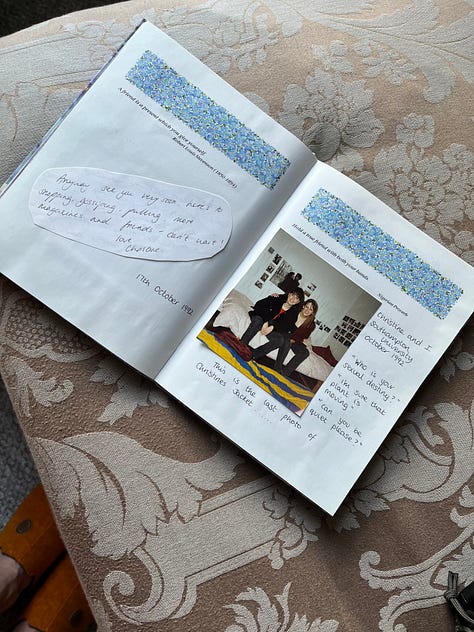 A friend is a present which you give yourself
Robert Louis Stevenson (1850-1894)
Anyway see you very soon, here's to
shopping, gossiping, pulling, more
magazines and friends - can't wait!
love
Christine
17th October 1992
Hold a true friend with both your hands
Nigerian Proverb
Christine and I
Southampton
University
October 1992
"Who is your
social destiny?"
"I'm sure that
plant is
moving"
"Can you be
quiet please?"
This is the last photo of
Christine's Jacket ....